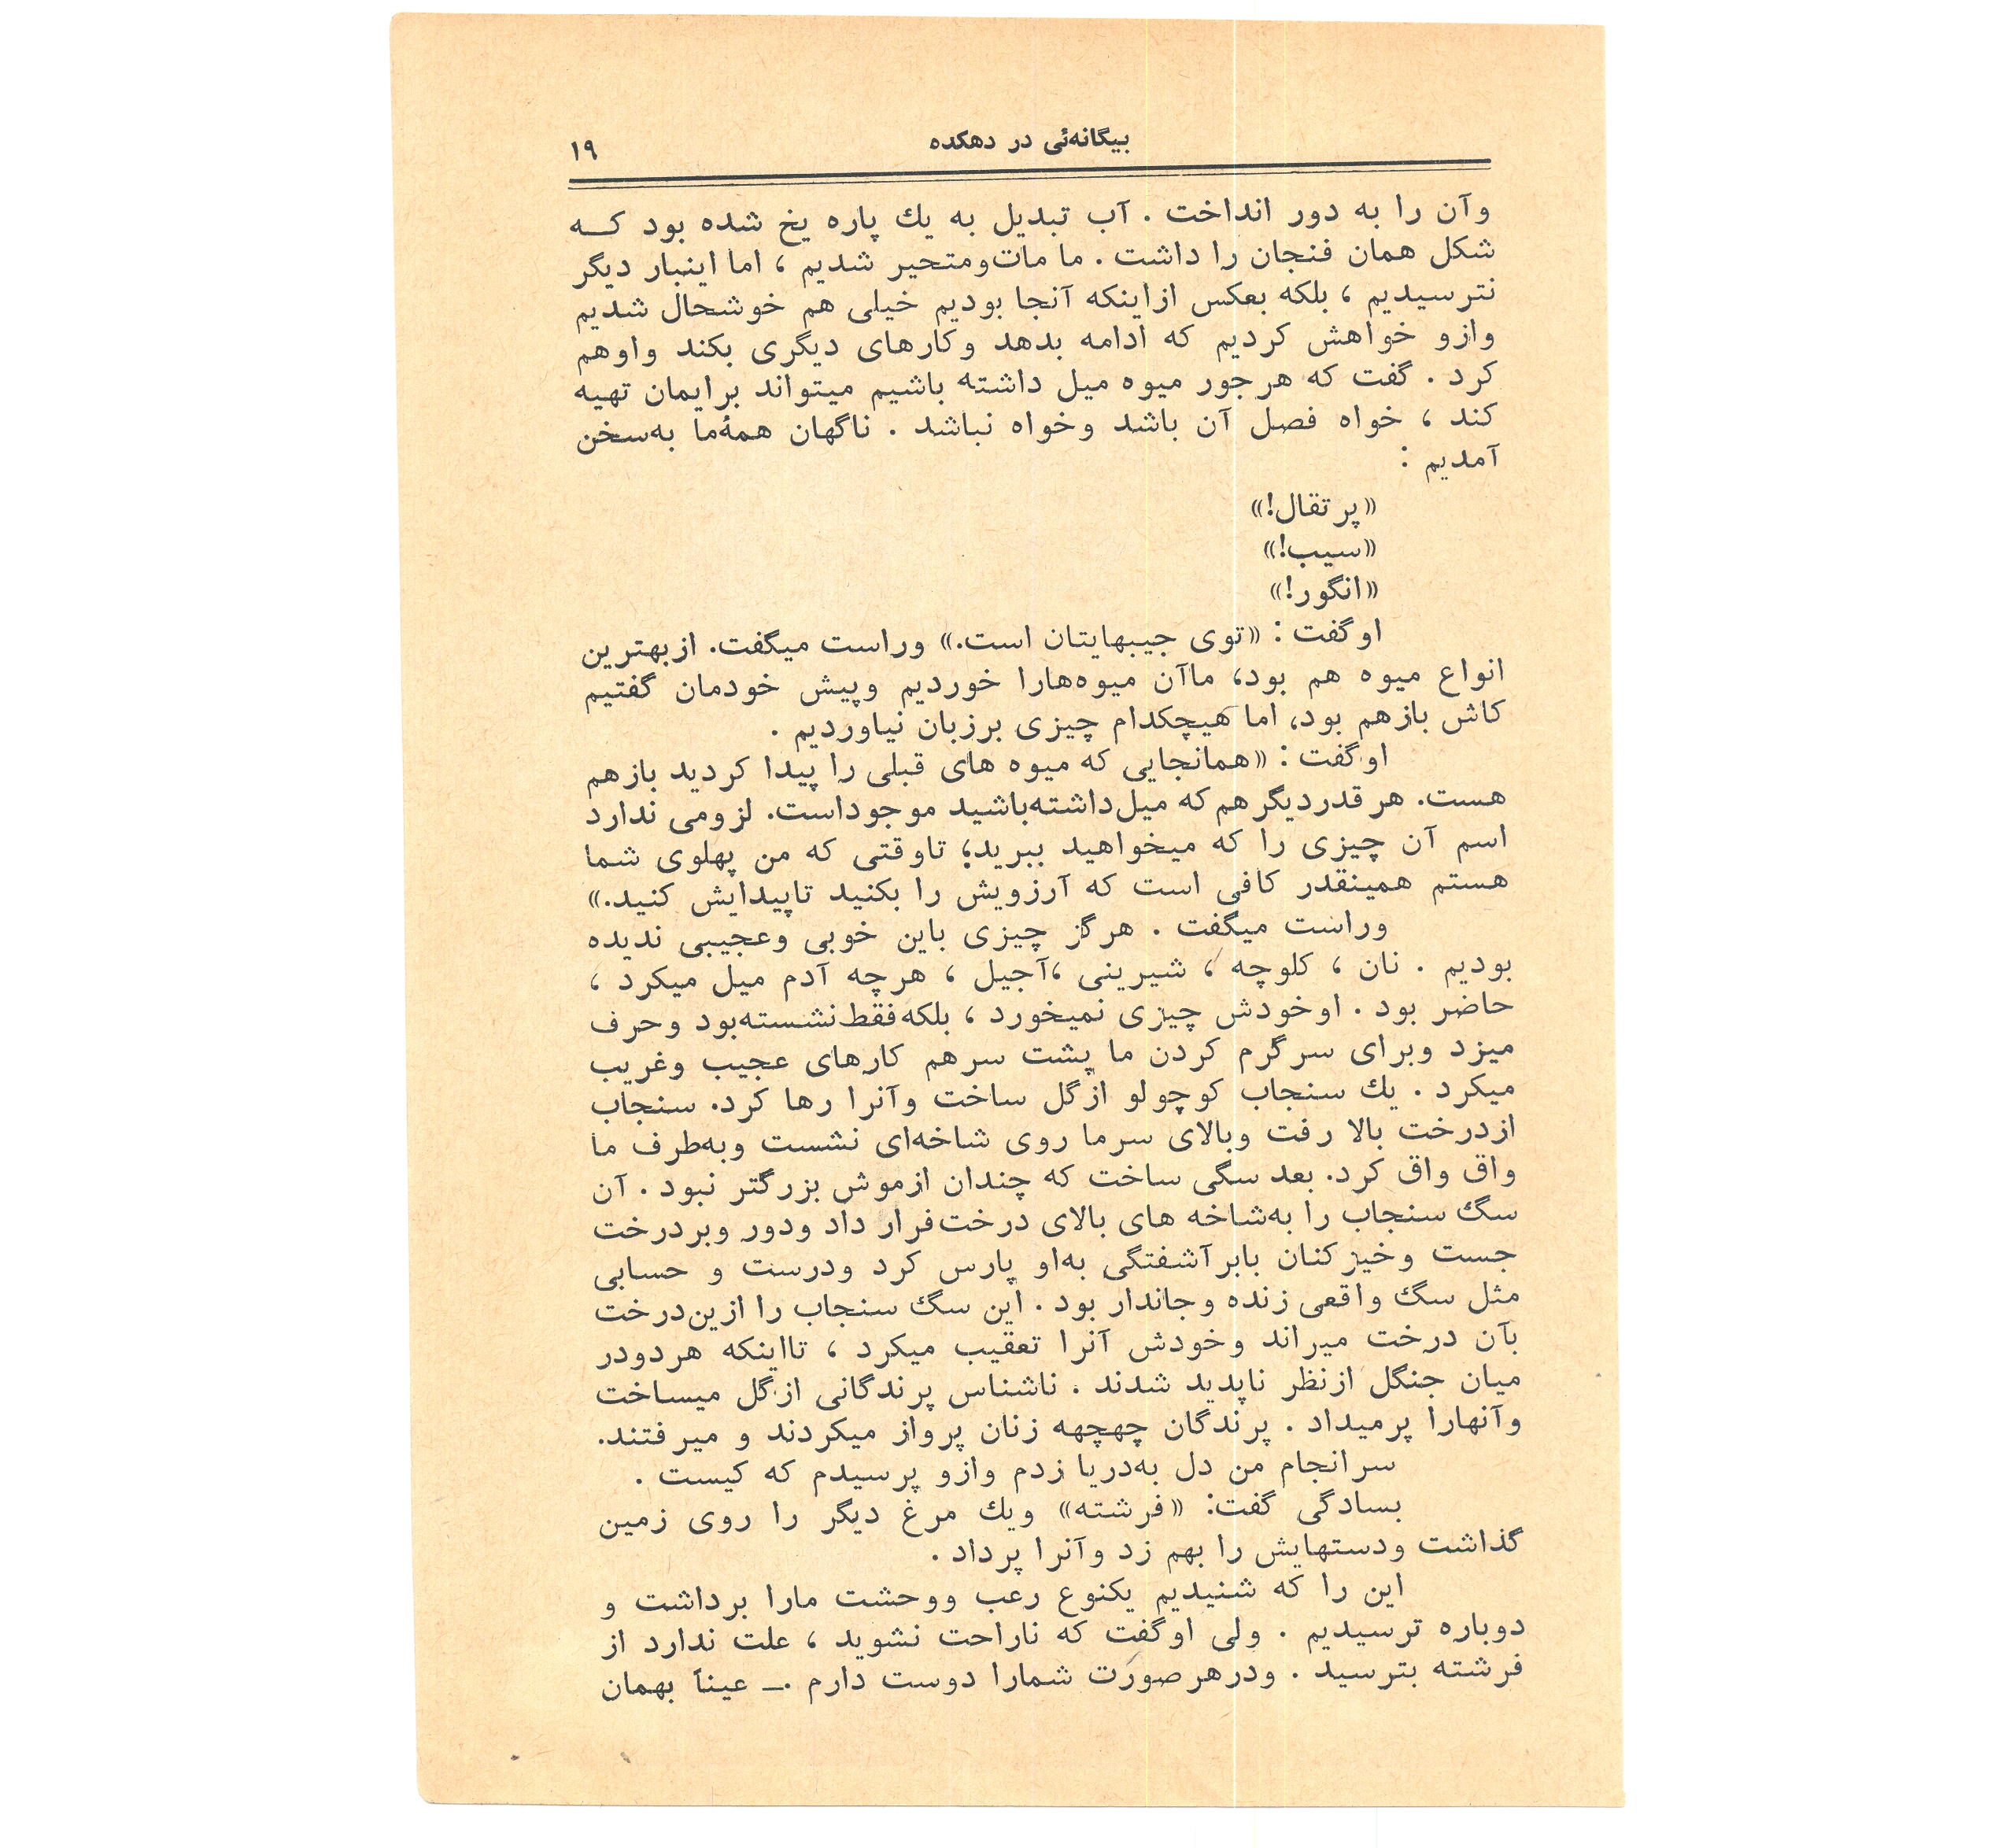 بیگانه‌ئی در دهکده
۱۹
وآن را به دور انداخت . آب تبدیل به یك پاره یخ شده بود کـــه
شکل همان فنجان را داشت . ما مات‌ومتحیر شدیم ، اما اینبار دیگر
نترسیدیم ، بلکه بعکس ازاینکه آنجا بودیم خیلی هم خوشحال شدیم
وازو خواهش کردیم که ادامه بدهد وکارهای دیگری بکند واوهم
کرد . گفت که هرجور میوه میل داشته باشیم میتواند برایمان تهیه
کند ، خواه فصل آن باشد وخواه نباشد . ناگهان همهٔ‌ما به‌سخن
آمدیم :
«پرتقال!»
«سیب!»
«انگور!»
اوگفت : «توی جیبهایتان است.» وراست میگفت. ازبهترین
انواع میوه هم بود، ماآن میوه‌هارا خوردیم وپیش خودمان گفتیم
کاش بازهم بود، اما هیچکدام چیزی برزبان نیاوردیم .
اوگفت : «همانجایی که میوه های قبلی را پیدا کردید بازهم
هست. هرقدردیگرهم‌که میل‌داشته‌باشید موجوداست. لزومی ندارد
اسم آن چیزی را که میخواهید ببرید؛ تاوقتی که من پهلوی شما
هستم همینقدر کافی است که آرزویش را بکنید تاپیدایش کنید.»
وراست میگفت . هرگز چیزی باین خوبی وعجیبی ندیده
بودیم . نان ، کلوچه ، شیرینی ،آجیل ، هرچه آدم میل میکرد ،
حاضر بود . اوخودش چیزی نمیخورد ، بلکه‌فقط‌نشسته‌بود وحرف
میزد وبرای سرگرم کردن ما پشت سرهم کارهای عجیب وغریب
میکرد . یك سنجاب کوچولو ازگل ساخت وآنرا رها کرد. سنجاب
ازدرخت بالا رفت وبالای سرما روی شاخه‌ای نشست وبه‌طرف ما
واق واق کرد. بعد سگی ساخت که چندان ازموش بزرگتر نبود . آن
سگ سنجاب را به‌شاخه های بالای درخت‌فرار داد ودور وبردرخت
جست وخیزکنان بابرآشفتگی به‌او پارس کرد ودرست و حسابی
مثل سگ واقعی زنده وجاندار بود . این سگ سنجاب را ازین‌درخت
بآن درخت میراند وخودش آنرا تعقیب میکرد ، تااینکه هردودر
میان جنگل ازنظر ناپدید شدند . ناشناس پرندگانی ازگل میساخت
وآنهارا پرمیداد . پرندگان چهچهه زنان پرواز میکردند و میرفتند.
سرانجام من دل به‌دریا زدم وازو پرسیدم که کیست .
بسادگی گفت: «فرشته» ویك مرغ دیگر را روی زمین
گذاشت ودستهایش را بهم زد وآنرا پرداد .
این را که شنیدیم یکنوع رعب ووحشت مارا برداشت و
دوباره ترسیدیم . ولی اوگفت که ناراحت نشوید ، علت ندارد از
فرشته بترسید . ودرهرصورت شمارا دوست دارم .ـ عیناً بهمان